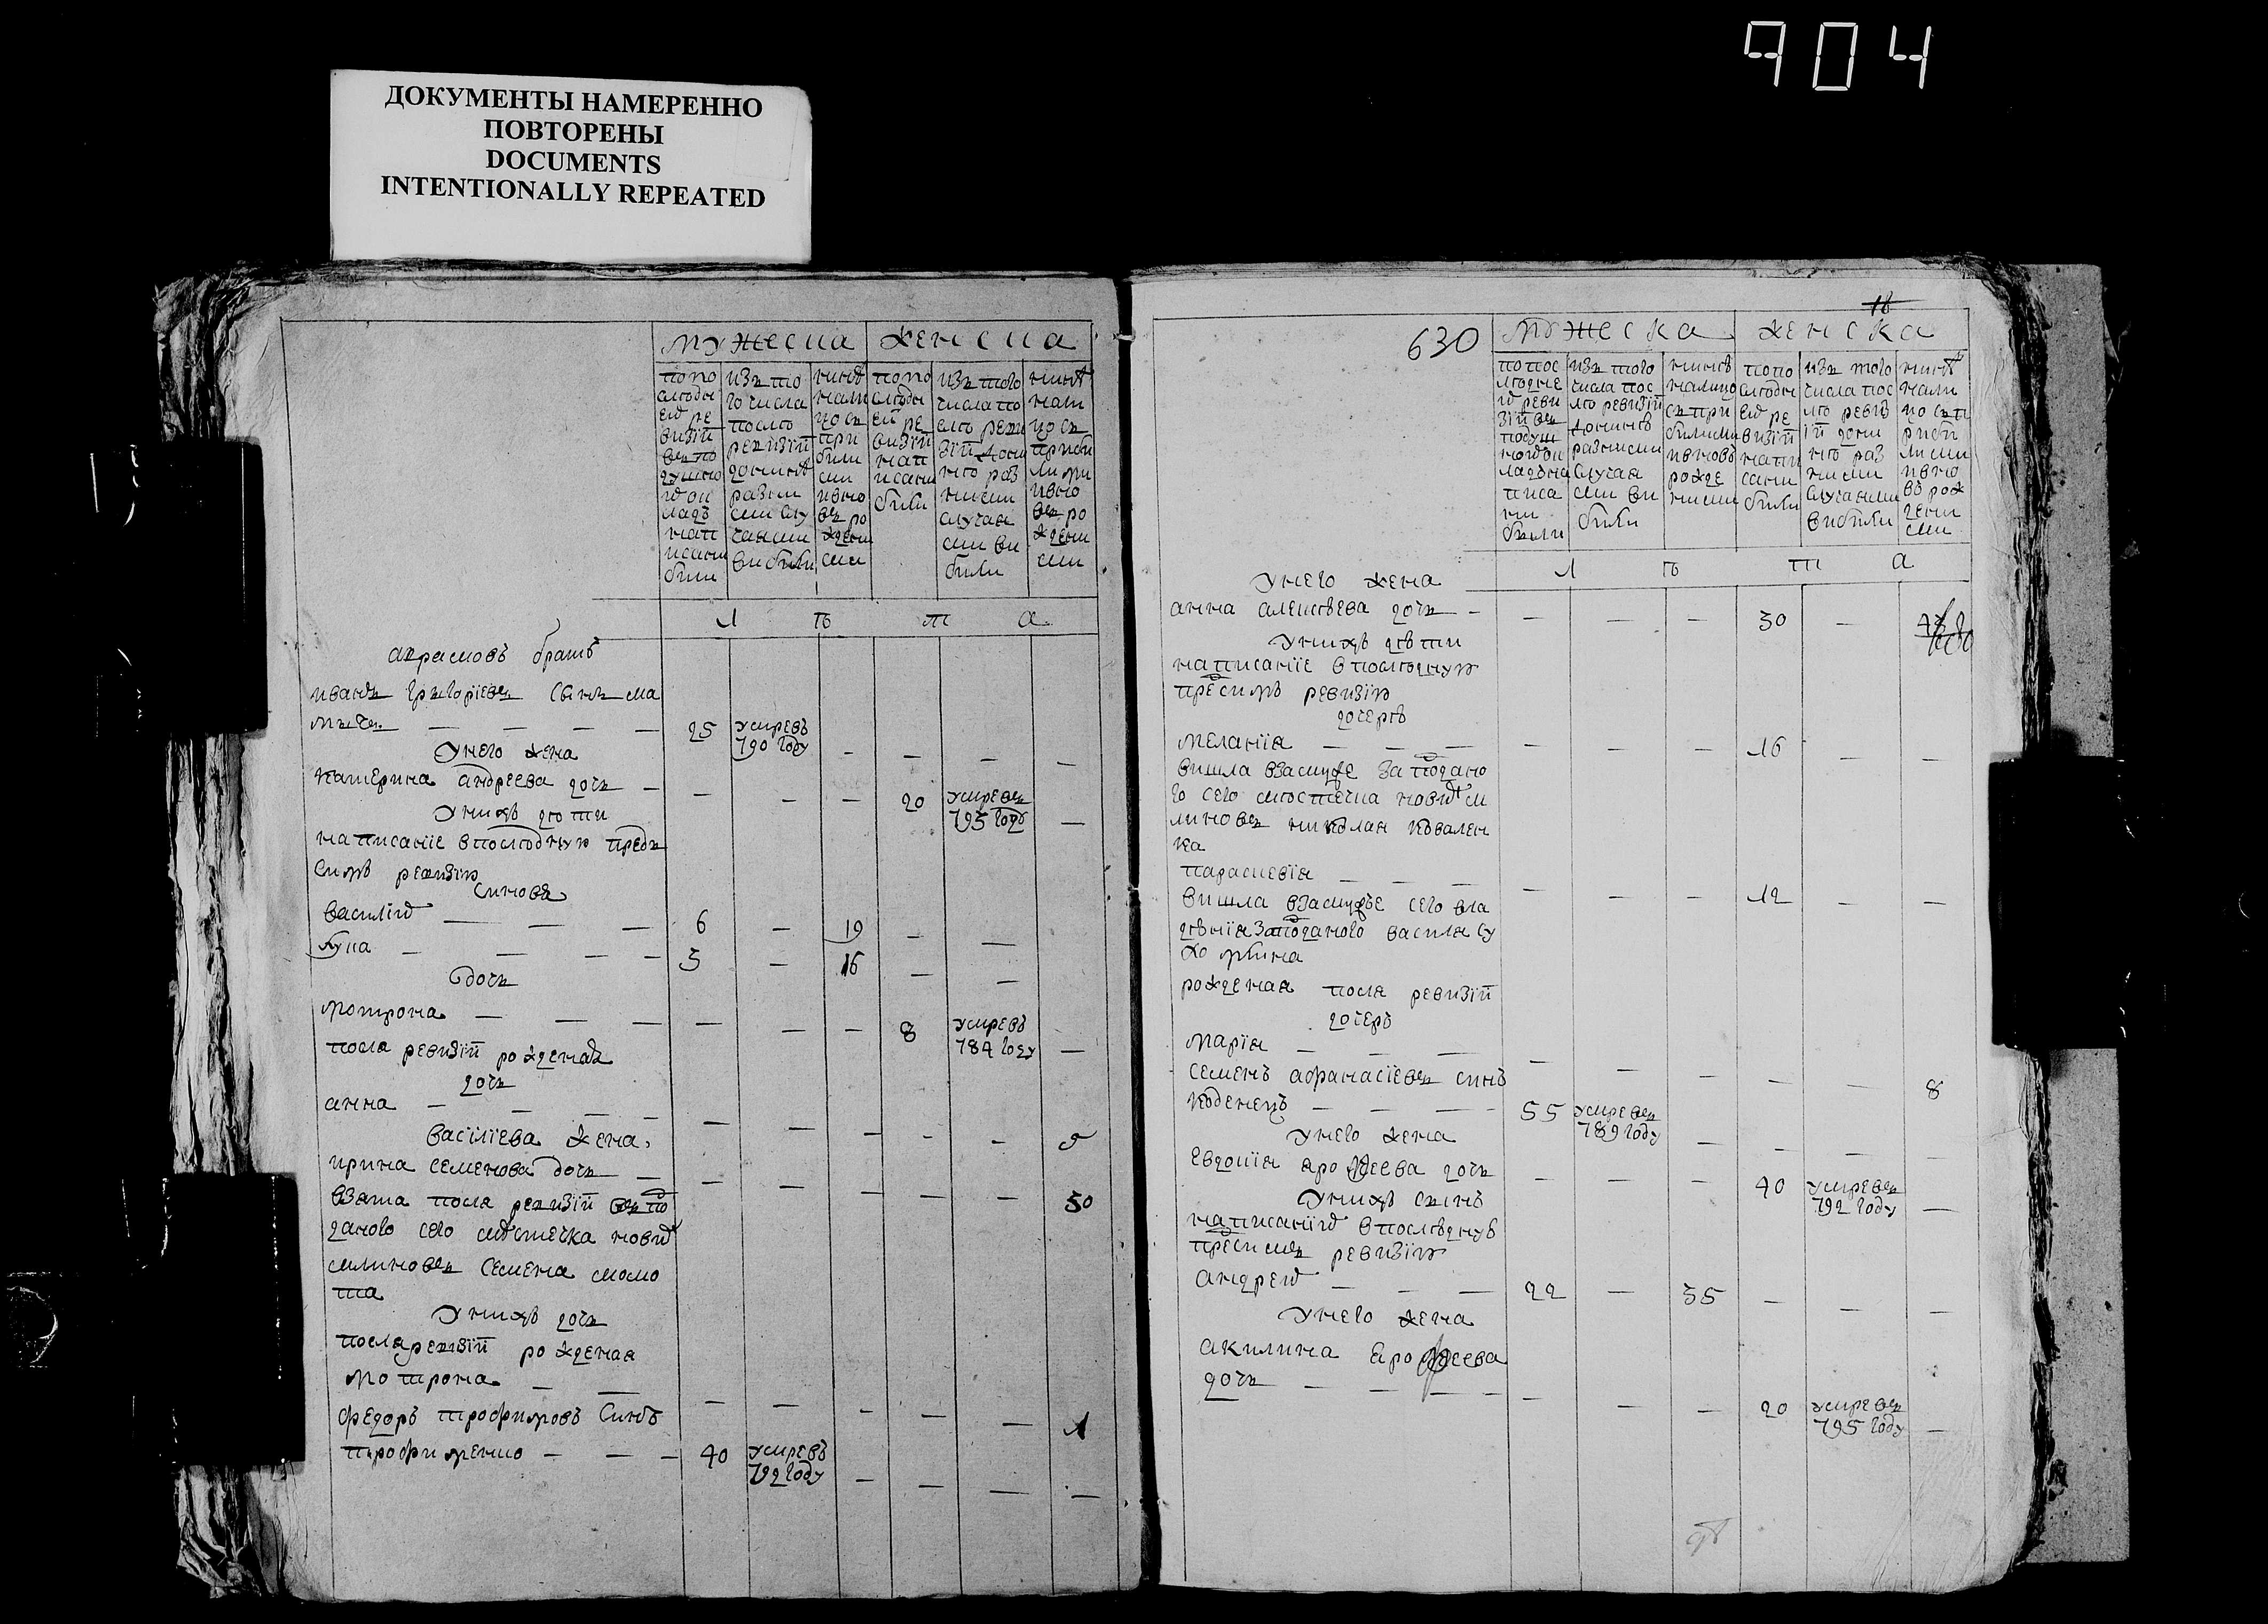 904
ДОКУМЕНТЫ НАМЕРЕННО
ПОВТОРЕНЫ
DOCUMENTS
INTENTIONALLY REPEATED
мужеска женска
попо
слѣдн
ей ре
визїи
въ по
душно
й ок
ладъ
нап
исани
были
изъ то
го числа
послѣ
ревизїи
донинѣ
разни
ми слу
чаями
выбыли
нинѣ
нали
цо съ
при
были
ми
ивно
въ ро
жден
ми
попо
слѣдн
ей ре
визїи
нап
исани
были
изъ того
числа по
слѣ реви
зїи дони
нѣ раз
ними
случая
ми ви
были
нинѣ
нали
цо съ
приби
лими
ивно
въ ро
ждени
ми
л ѣ т а
братъ
иванъ григорїевъ сынъ ма
25 умрѣ въ
790 году
унего жена
катерина андреева дочь
20 умре въ
795 году
унихъ дѣти
написанїе впослѣдную предъ
симъ ревизїю
синовя
василїй 6 19
лука 3 16
дочь
мотрона 8 умре въ
784 году
посля ревизїи рожденая
дочь
анна 9
василїева жена
ирина семенова дочь 30
взята посля ревизїи въ по
даного сего мѣстечка новий
млиновъ семена момо
та
унихъ дочь
посля ревизїи рожденая
мотрона 1
федоръ трофимовъ синъ
трофименко 40 умре въ
792 году
18
630
мужеска женска
попос
лѣдне
й реви
зїи въ
подуш
ной ок
ладъ на
писа
ни
были
изъ того
числа пос
лѣ ревизїи
донинѣ
разними
случая
ми ви
были
нинѣ
налицо
съ при
былими
ивновъ
рожде
ними
попо
слѣдн
ей ре
визїи
напи
сани
были
изъ того
числа пос
лѣ ревиз
їи дони
нѣ раз
ними
случаями
вибыли
нинѣ
нали
цо съ п
риби
лими
ивно
въ рож
дени
ми
л ѣ т а
унего жена
анна алексѣева дочь 30
унихъ дѣти
написанїе впослѣднуюю
пресимъ ревизїю
дочерѣ
меланїя 16
вишла взамуже заподано
го сего мѣстечка новий м
линовъ николая ковален
ка
параскевїя 12
вишла взамужъе сего вла
дѣнїя заподаного василя су
хо
рожденая посля ревизїи
дочеръ
марїя 8
семенъ афанасїевъ синъ
коденецъ 55 умре въ
789 году
унего жена
евдокїя ярофеева дочь
40 умре въ
792 году
унихъ сынъ
написанїй впослѣднуѣ
пресимъ ревизїю
андрей 22 35
унего жена
акилина ярофеева
дочь 20 умре въ
795 году